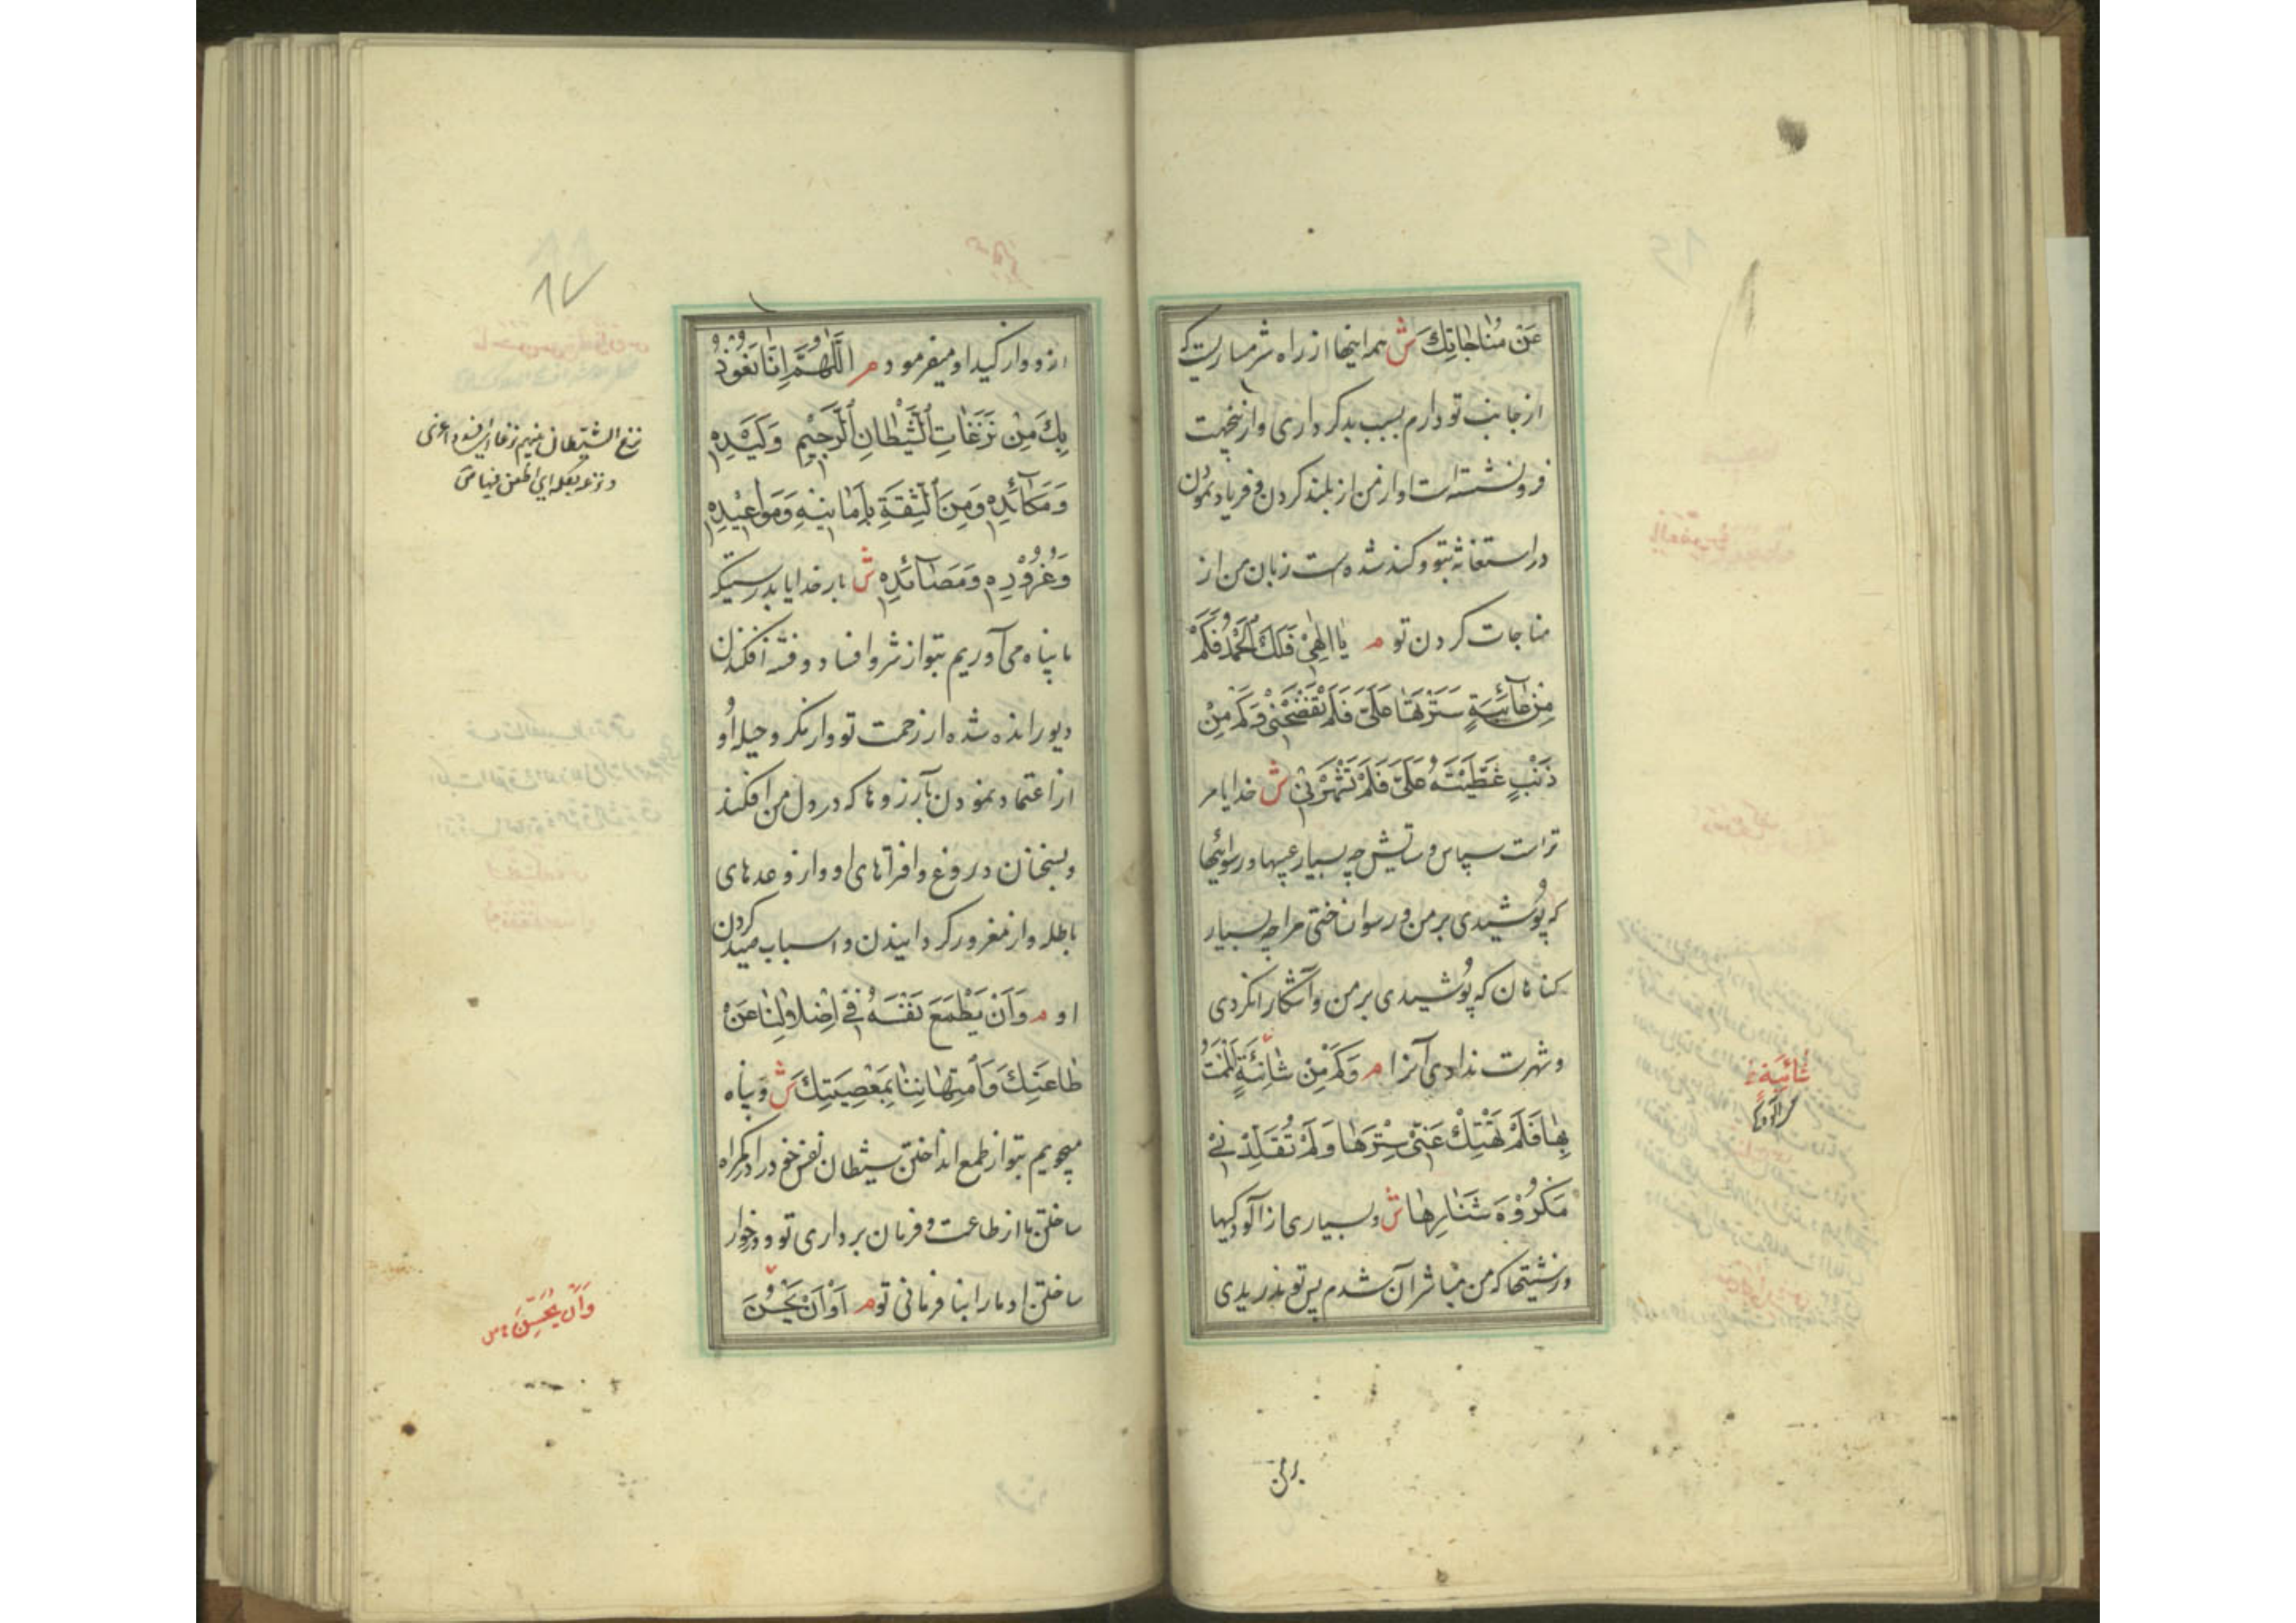 عَنْ مُنَاجَاتِكَ ش همه اینها از راه شرمساریست که
از جانب تو دارم بسبب بدکرداری و ازینجهت
فرونشسته است اواز من از بلند کردن و فریاد نمودن
در استغاثه بتو و کند شده است زبان من از
مناجات کردن تو م يَا إِلٰهِيْ فَلَكَ الْحَمْدُ فَكَمْ
مِنْ عَآئِبَةٍ سَتَرْتَهَا عَلَيَّ فَلَمْ تَفْضَحْنِيْ وَكَمْ مِنْ
ذَنْبٍ غَطَّيْتَهُ عَلَيَّ فَلَمْ تَشْهَرْنِيْ ش خدایا مر
تراست سپاس و ستایش چه بسیار عیبها و رسوائیها
که پوشیدی بر من و رسوا نساختی مرا چه بسیار
کناهان که پوشیدی بر من و آشکارا نکردی
و شهرت ندادی آنرا م وَكَمْ مِنْ شَائِبَةٍ أَلْمَمْتُ
بِهَا فَلَمْ تَهْتِكْ عَنِّيْ سِتْرَهَا وَلَمْ تُقَلِّدْنِيْ
مَكْرُوْهَ شَنَارِهَا ش و بسیاری از آلودکیها
و زشتیها که من مباشر آن شدم پس تو ندریدی
شَائِبَةٍ
بر من
از و واز کید او میفرمود م اَللّٰهُمَّ إِنَّا نَعُوْذُ
بِكَ مِنْ نَزَغَاتِ الشَّيْطَانِ الرَّجِيْمِ وَكَيْدِهِ
وَمَكَآئِدِهِ وَمِنَ الثِّقَةِ بِأَمَانِيِّهِ وَمَوَاعِيْدِهِ
وَغُرُوْرِهِ وَمَصَآئِدِهِ ش بار خدایا بدرستیکه
ما پناه می آوریم بتو از شر و افساد و فتنه افکندن
دیو رانده شده از رحمت تو و از مکر و حیله او
از اعتماد نمودن بآرزوها که در دل من افکند
و بسخنان دروغ و افتراهای او و از وعدهای
باطله و از مغرور کردانیدن و اسباب صید کردن
او م وَأَنْ يُطْمِعَ نَفْسَهُ فِيْ إِضْلَالِنَا عَنْ
طَاعَتِكَ وَامْتِهَانِنَا بِمَعْصِيَتِكَ ش و پناه
میجویم بتو از طمع انداختن شیطان نفس خود را در کمراه
ساختن ما از طاعت و فرمان برداری تو و در خوار
ساختن او ما را بنا فرمانی تو م أَوْ أَنْ يَحْسُنَ
نزغ الشیطان بینهم
وَأَنْ يُحَسِّنَ